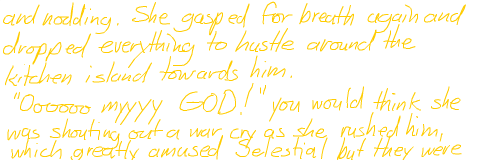 and nodding. She gasped for breath again and
dropped everything to hustle around the
kitchen island towards him.
"Oooooo myyyy GOD!" you would think she
was shouting out a war cry as she rushed him,
which greatly amused Selestial but they were